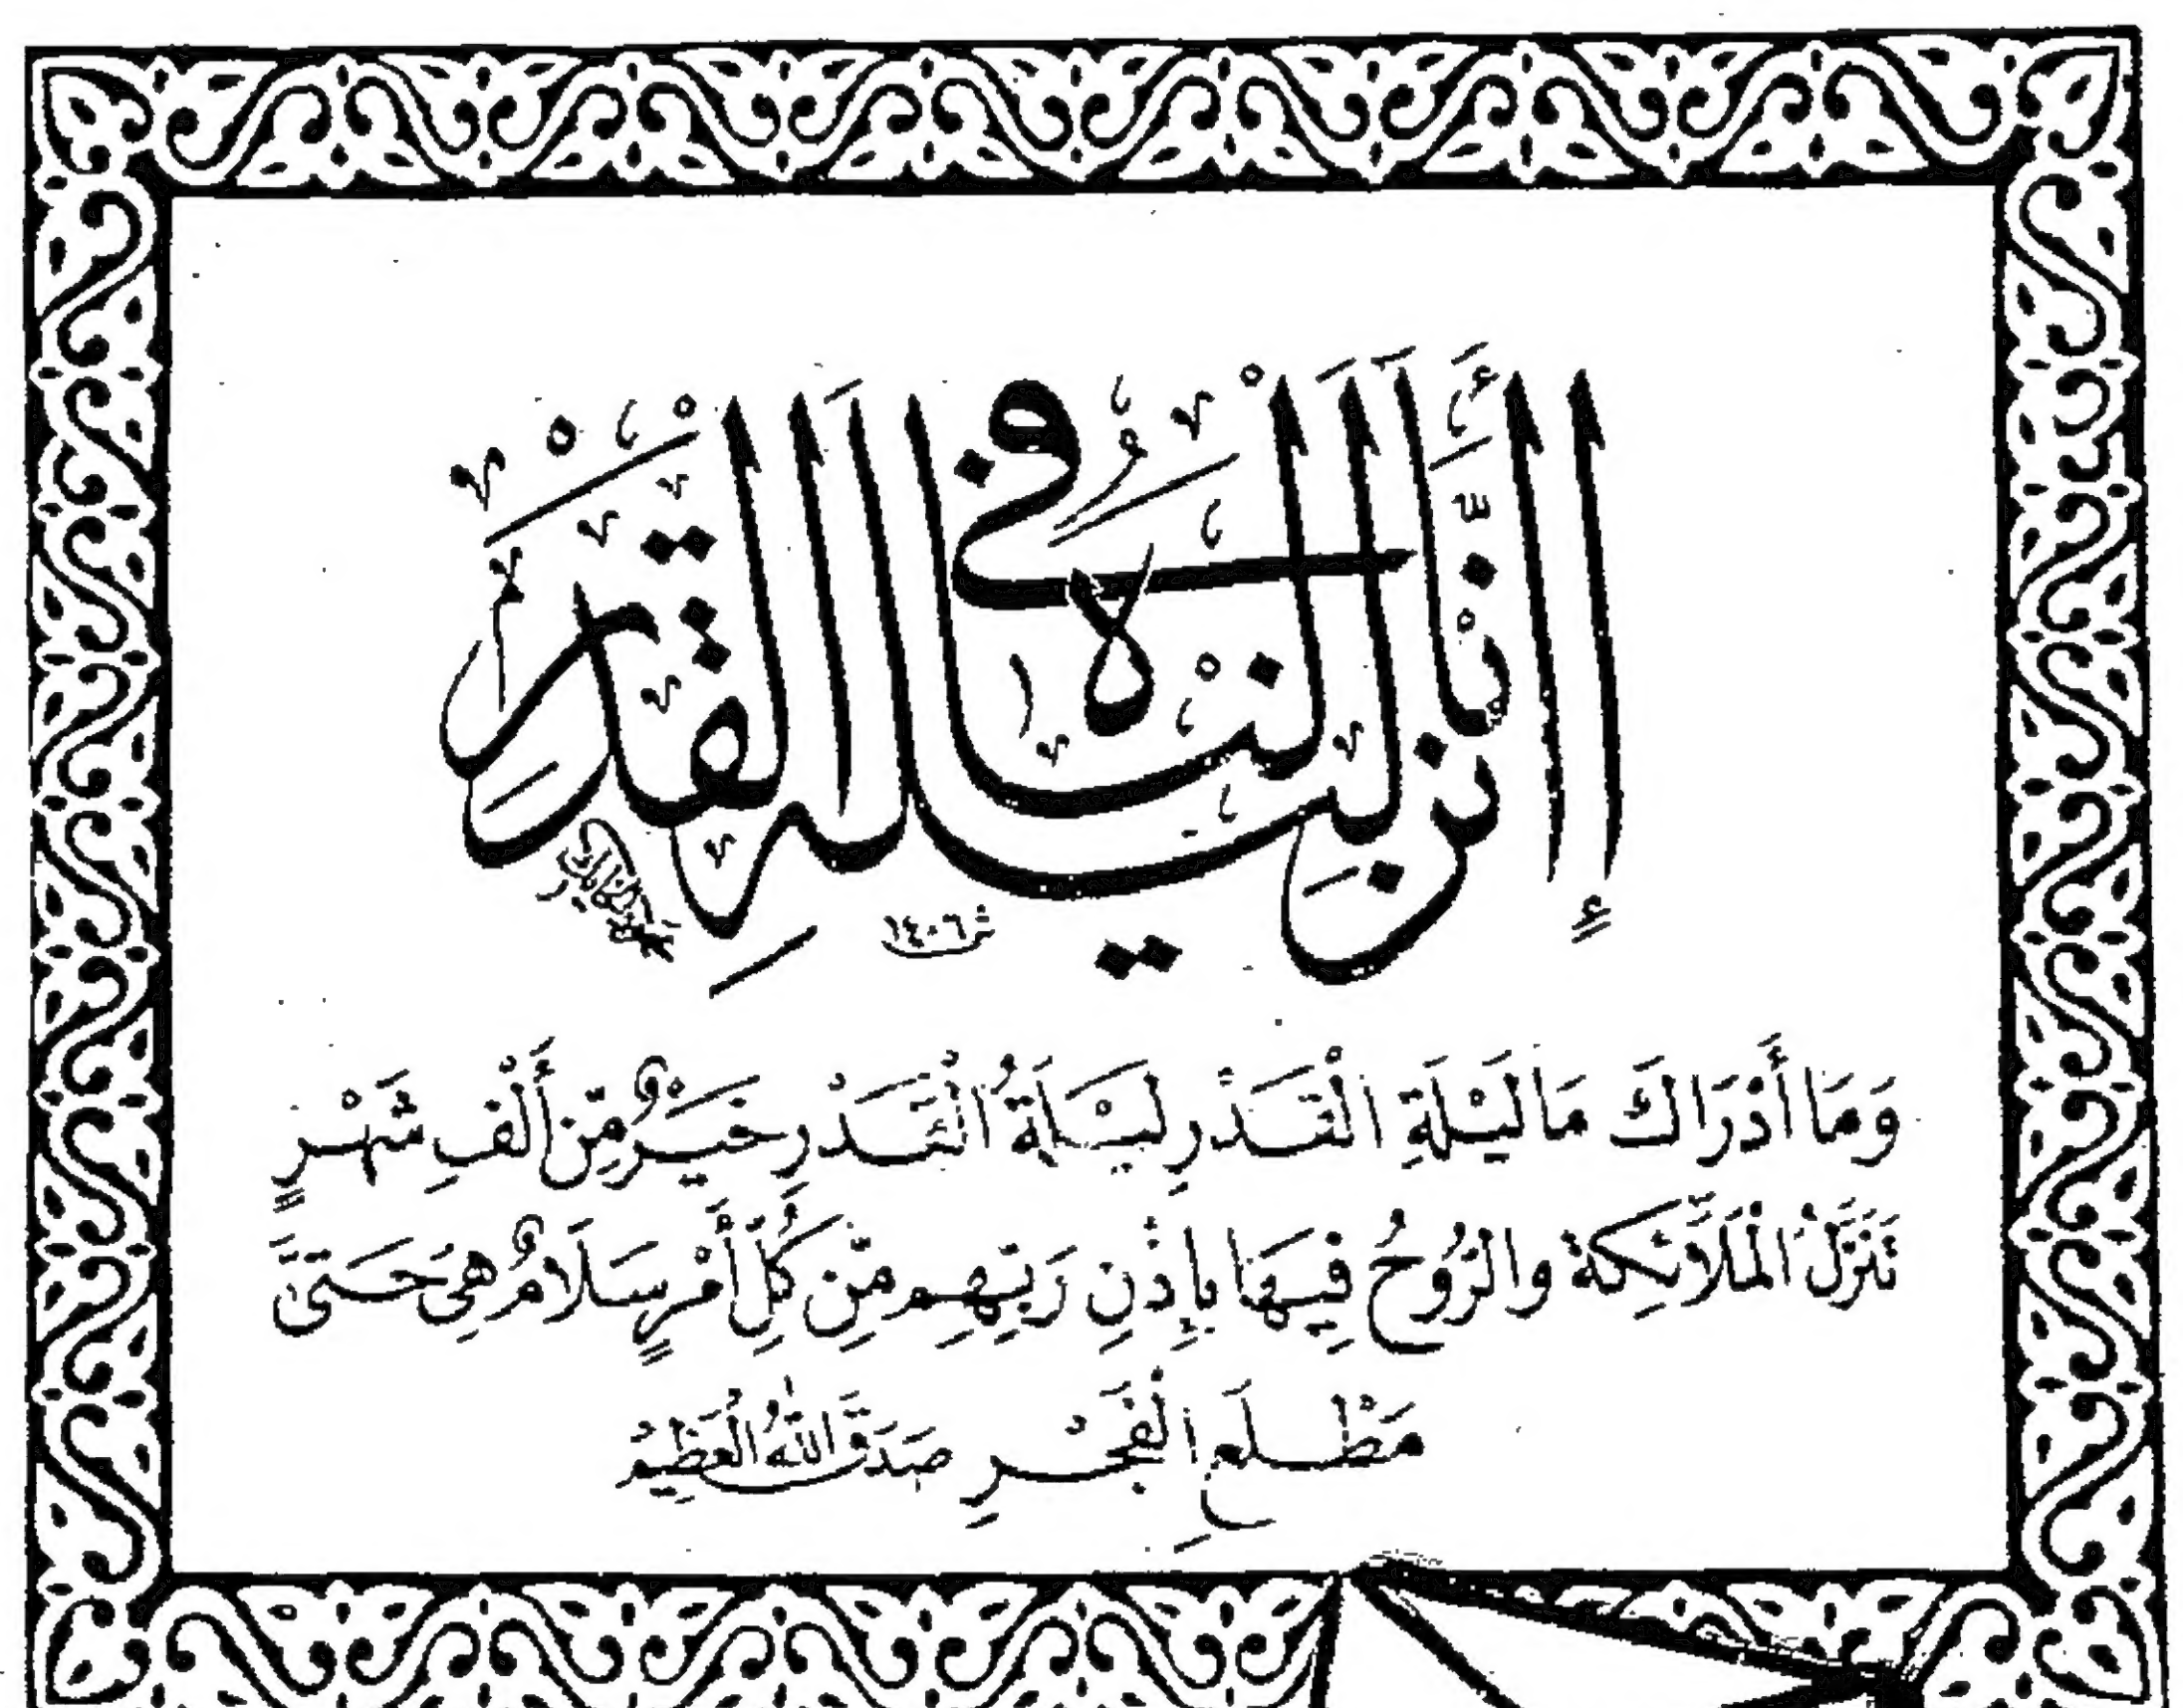 إِنَّا أَنْزَلْنَاهُ فِي لَيْلَةِ الْقَدْرِ
١٤٠٦
وَمَا أَدْرَاكَ مَا لَيْلَةِ الْقَدْرِ لَيْلَةُ الْقَدْرِ خَيْرٌ مِّنْ أَلْفِ شَهْرٍ
تَنَزَّلُ الْمَلَآئِكَة والرُّوحُ فِيهَا بِإِذْنِ رَبِّهِم مِّن كُلِّ أَمْرٍ سَلَامٌ هِيَ حَتَّىٰ
مَطْلَعِ الْفَجْرِ صَدَقَ اللهُ الْعَظِيمُ